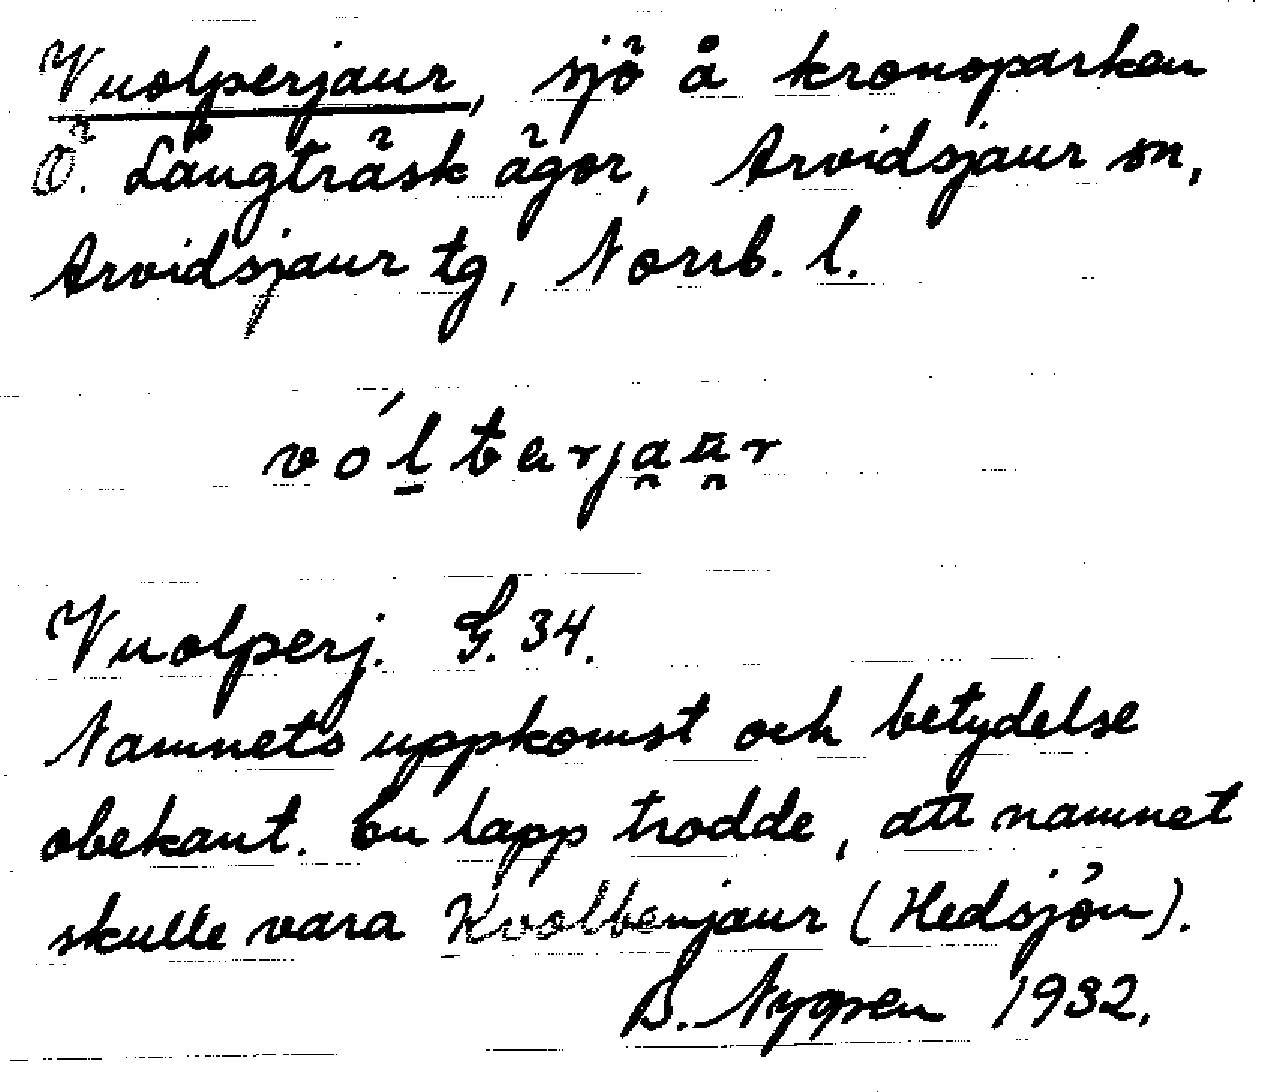 Vuolperjaur, sjö å kronoparken
Ö. Långträsk ägor, Arvidsjaur sn,
Arvidsjaur tg, Norrb. l.
Vuolperj. G. 34.
Namnets uppkomst och betydelse
obekant. En lapp trodde, att namnet
skulle vara Kvolbenjaur (Hedsjön).
B. Nygren 1932.